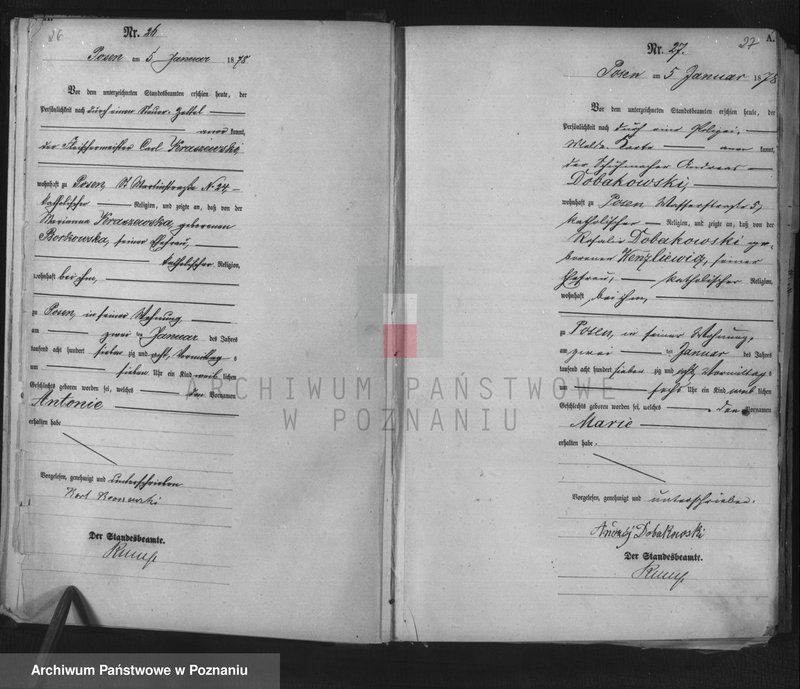 26
Nr. 26
Posen am 5 Januar 1878
Vor dem unterzeichneten Standesbeamten erschien heute, der
Persönlichkeit nach durch einen Steuer-Zettel
aner kannt,
der Fleischermeister Carl Kraszewski
wohnhaft zu Posen, St. Martinstraße N. 24
katholischer Religion, und zeigte an, daß von der
Marianna Kraszewska, geborenen
Borkowska, seiner Ehefrau,
katholischer Religion,
wohnhaft bei ihm,
zu Posen, in seiner Wohnung
am zwei ten Januar des Jahres
tausend acht hundert sieben zig und acht, Vormittag s
um sieben Uhr ein Kind weib lichen
Geschlechts geboren worden sei, welches den Vornamen
Antonie
erhalten habe
Vorgelesen, genehmigt und unterschrieben
Der Standesbeamte.
27
A.
Nr. 27.
Posen am 5 Januar 1878
Vor dem unterzeichneten Standesbeamten erschien heute, der
Persönlichkeit nach durch eine Polizei-
Melde-Karte aner kannt,
der Schuhmacher Andreas
Dobakowski,
wohnhaft zu Posen Wasserstraße 5,
katholischer Religion, und zeigte an, daß von der
Rosalie Dobakowski ge-
borenen, seiner
Ehefrau, katholischer Religion,
wohnhaft bei ihm,
zu Posen, in seiner Wohnung,
am zwei ten Januar des Jahres
tausend acht hundert sieben zig und acht Vormittag s
um sechs Uhr ein Kind weib lichen
Geschlechts geboren worden sei, welches den Vornamen
Marie
erhalten habe.
Vorgelesen, genehmigt und unterschrieben.
Andrzej Dobakowski
Der Standesbeamte.
ARCHIWUM PAŃSTWOWE
W POZNANIU
Archiwum Państwowe w Poznaniu